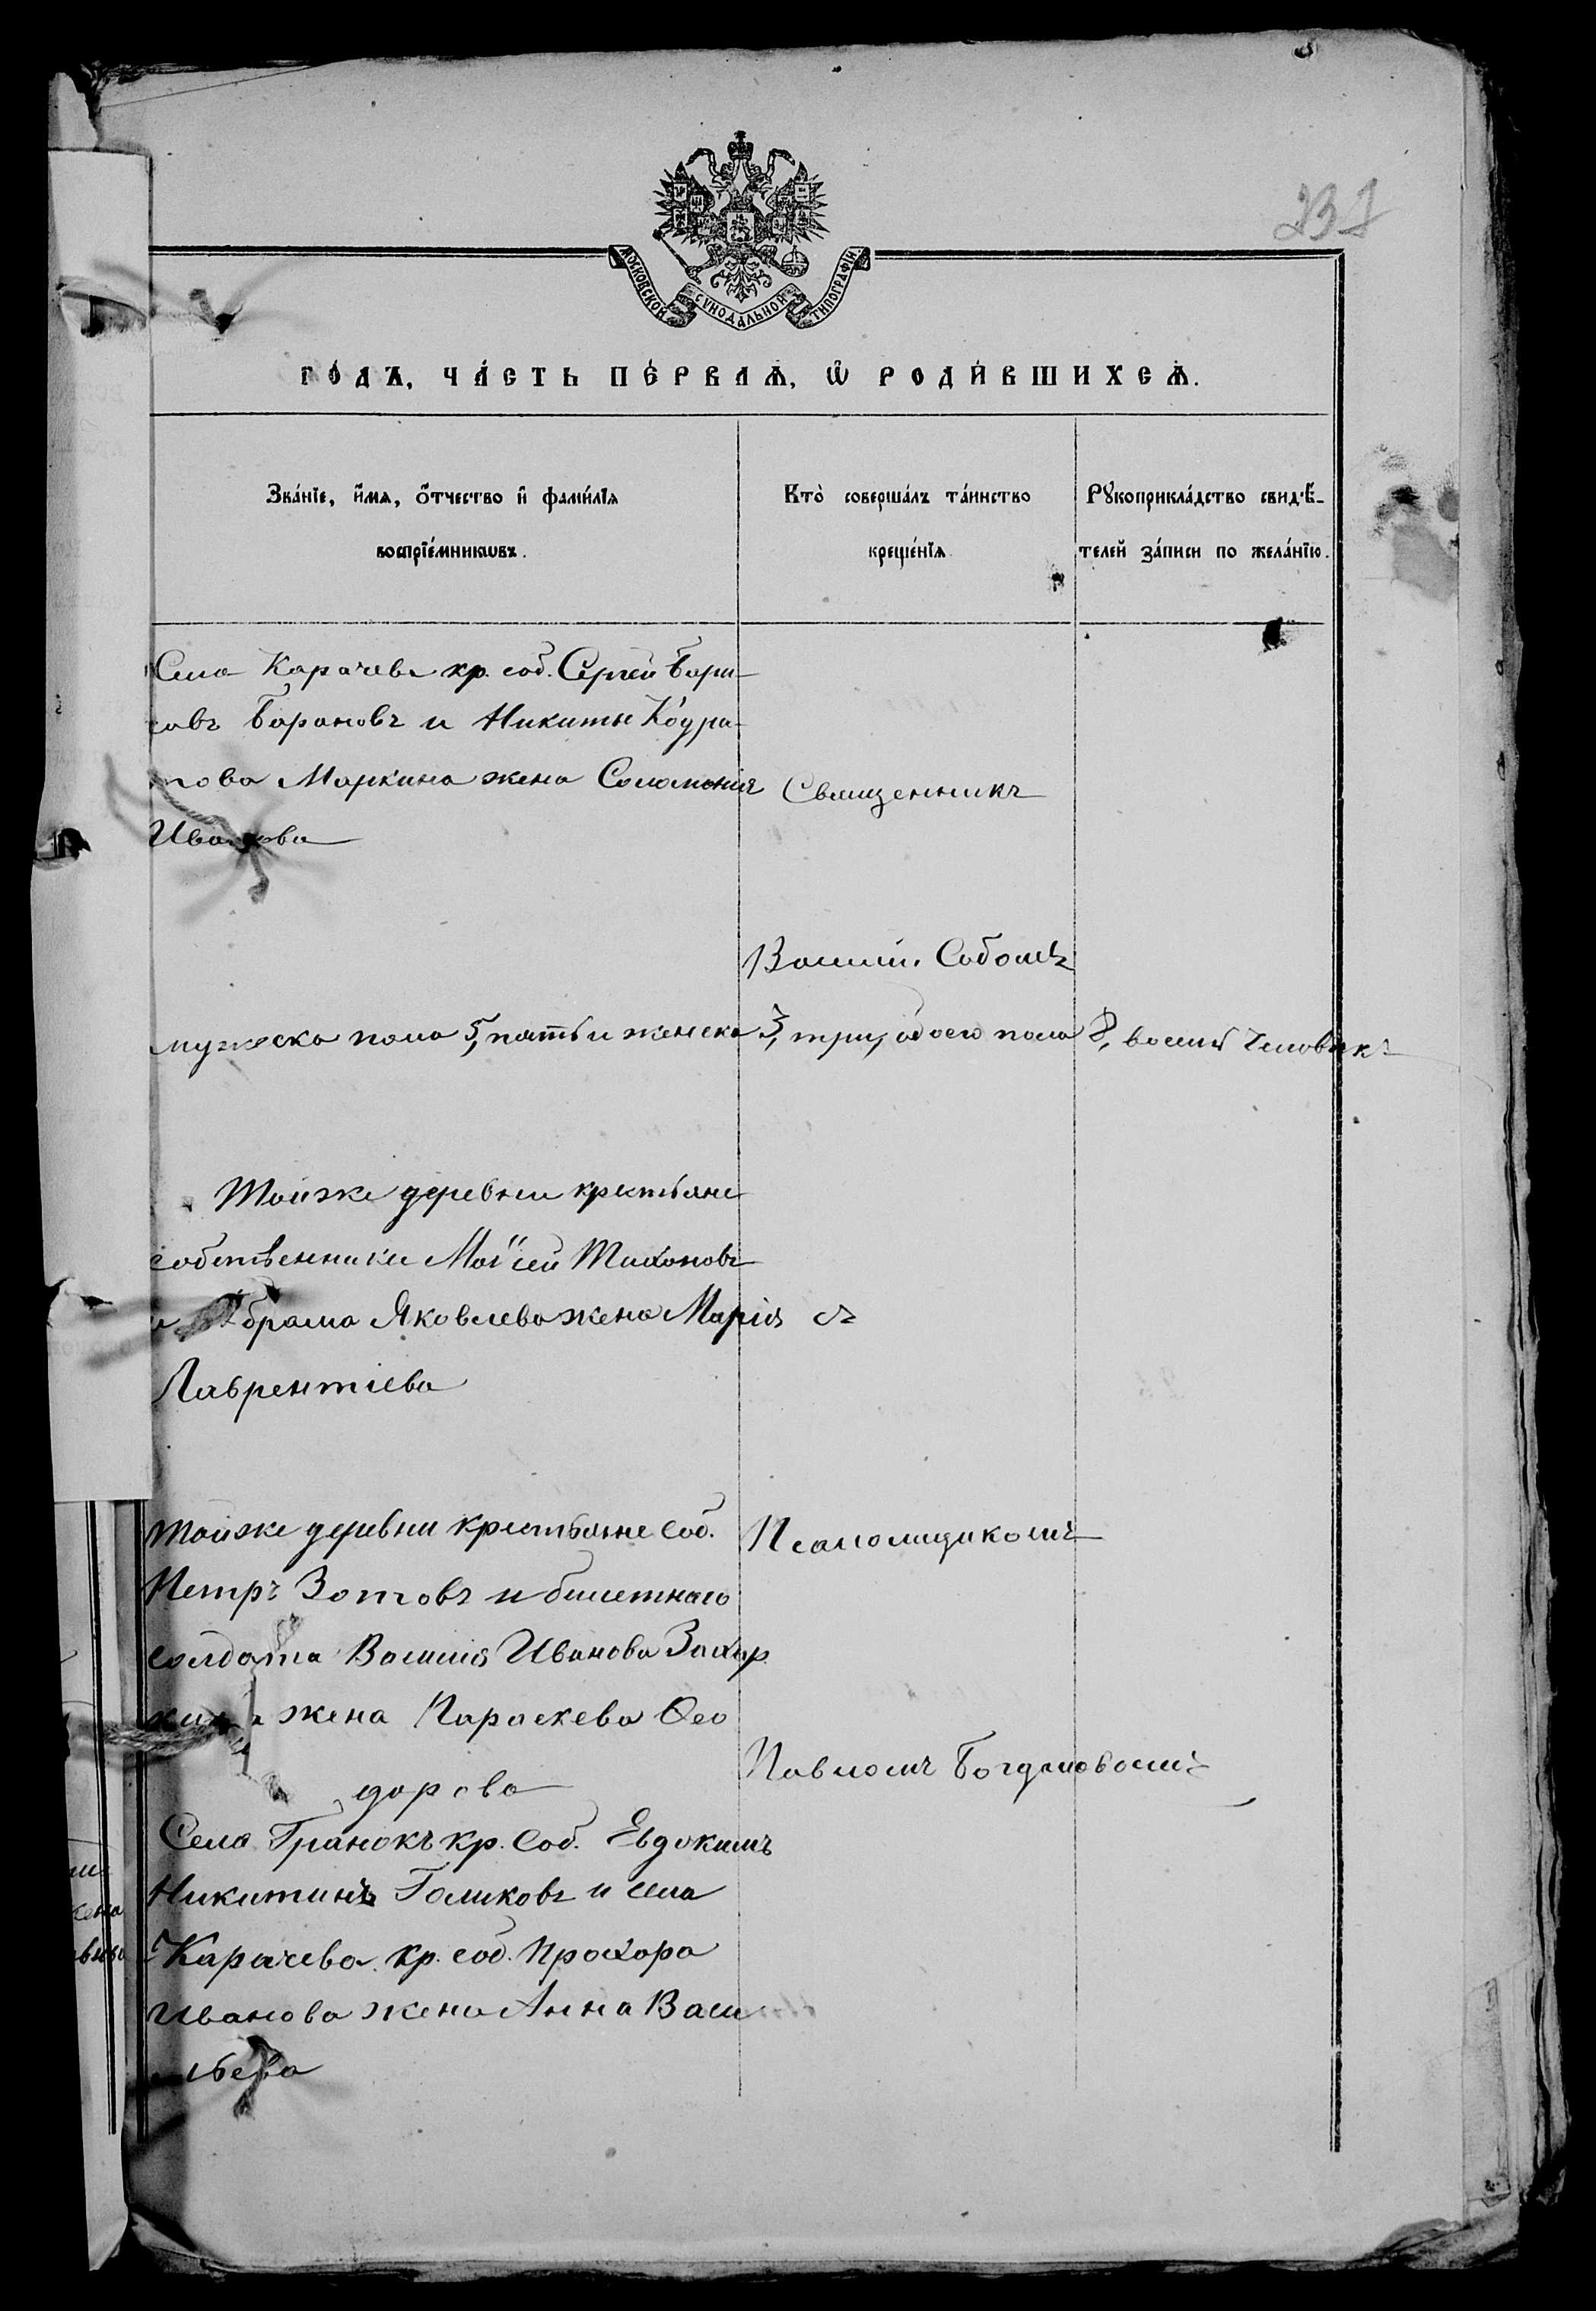 231
МОСКОВСКОЙ СѴНОДАЛЬНОЙ ТИПОГРАФІИ.
ГО́ДЪ, ЧА́СТЬ ПЕ́РВАѦ, Ѡ҆ РОДИ́ВШИХСѦ.
Зва́нїе, и҆́мѧ, ѻ҆́тчество и҆ фами́лїѧ
воспрїе́мникѡвъ.
Кто̀ соверша́лъ та́инство
креще́нїѧ
Рꙋкоприкла́дство свидѣ́-
телей за́писи по жела́нїю.
Села Карачева кр. соб. Сергей Бори-
совъ Барановъ и Никиты Кодра-
това Маркина жена Соломонія
Иванова
Священникъ
Василій Соболевъ
мужеска пола 5, пять и женска 3, три, обоего пола 8, восемь человѣкъ
Тойже деревни крестьяне
собственники Моѵсей Тихоновъ
и Абрама Яковлева жена Марія
Лаврентіева
съ
Тойже деревни крестьяне соб.
Петръ Зотовъ и билетнаго
солдата Василія Иванова Захар
кина жена Параскева Ѳео
дорова
Псаломщикомъ
Павломъ Богдановымъ
Села Гранокъ кр. соб. Евдокимъ
Никитинъ Голиковъ и села
Карачева кр. соб. Прохора
Иванова жена Анна Васи
льева